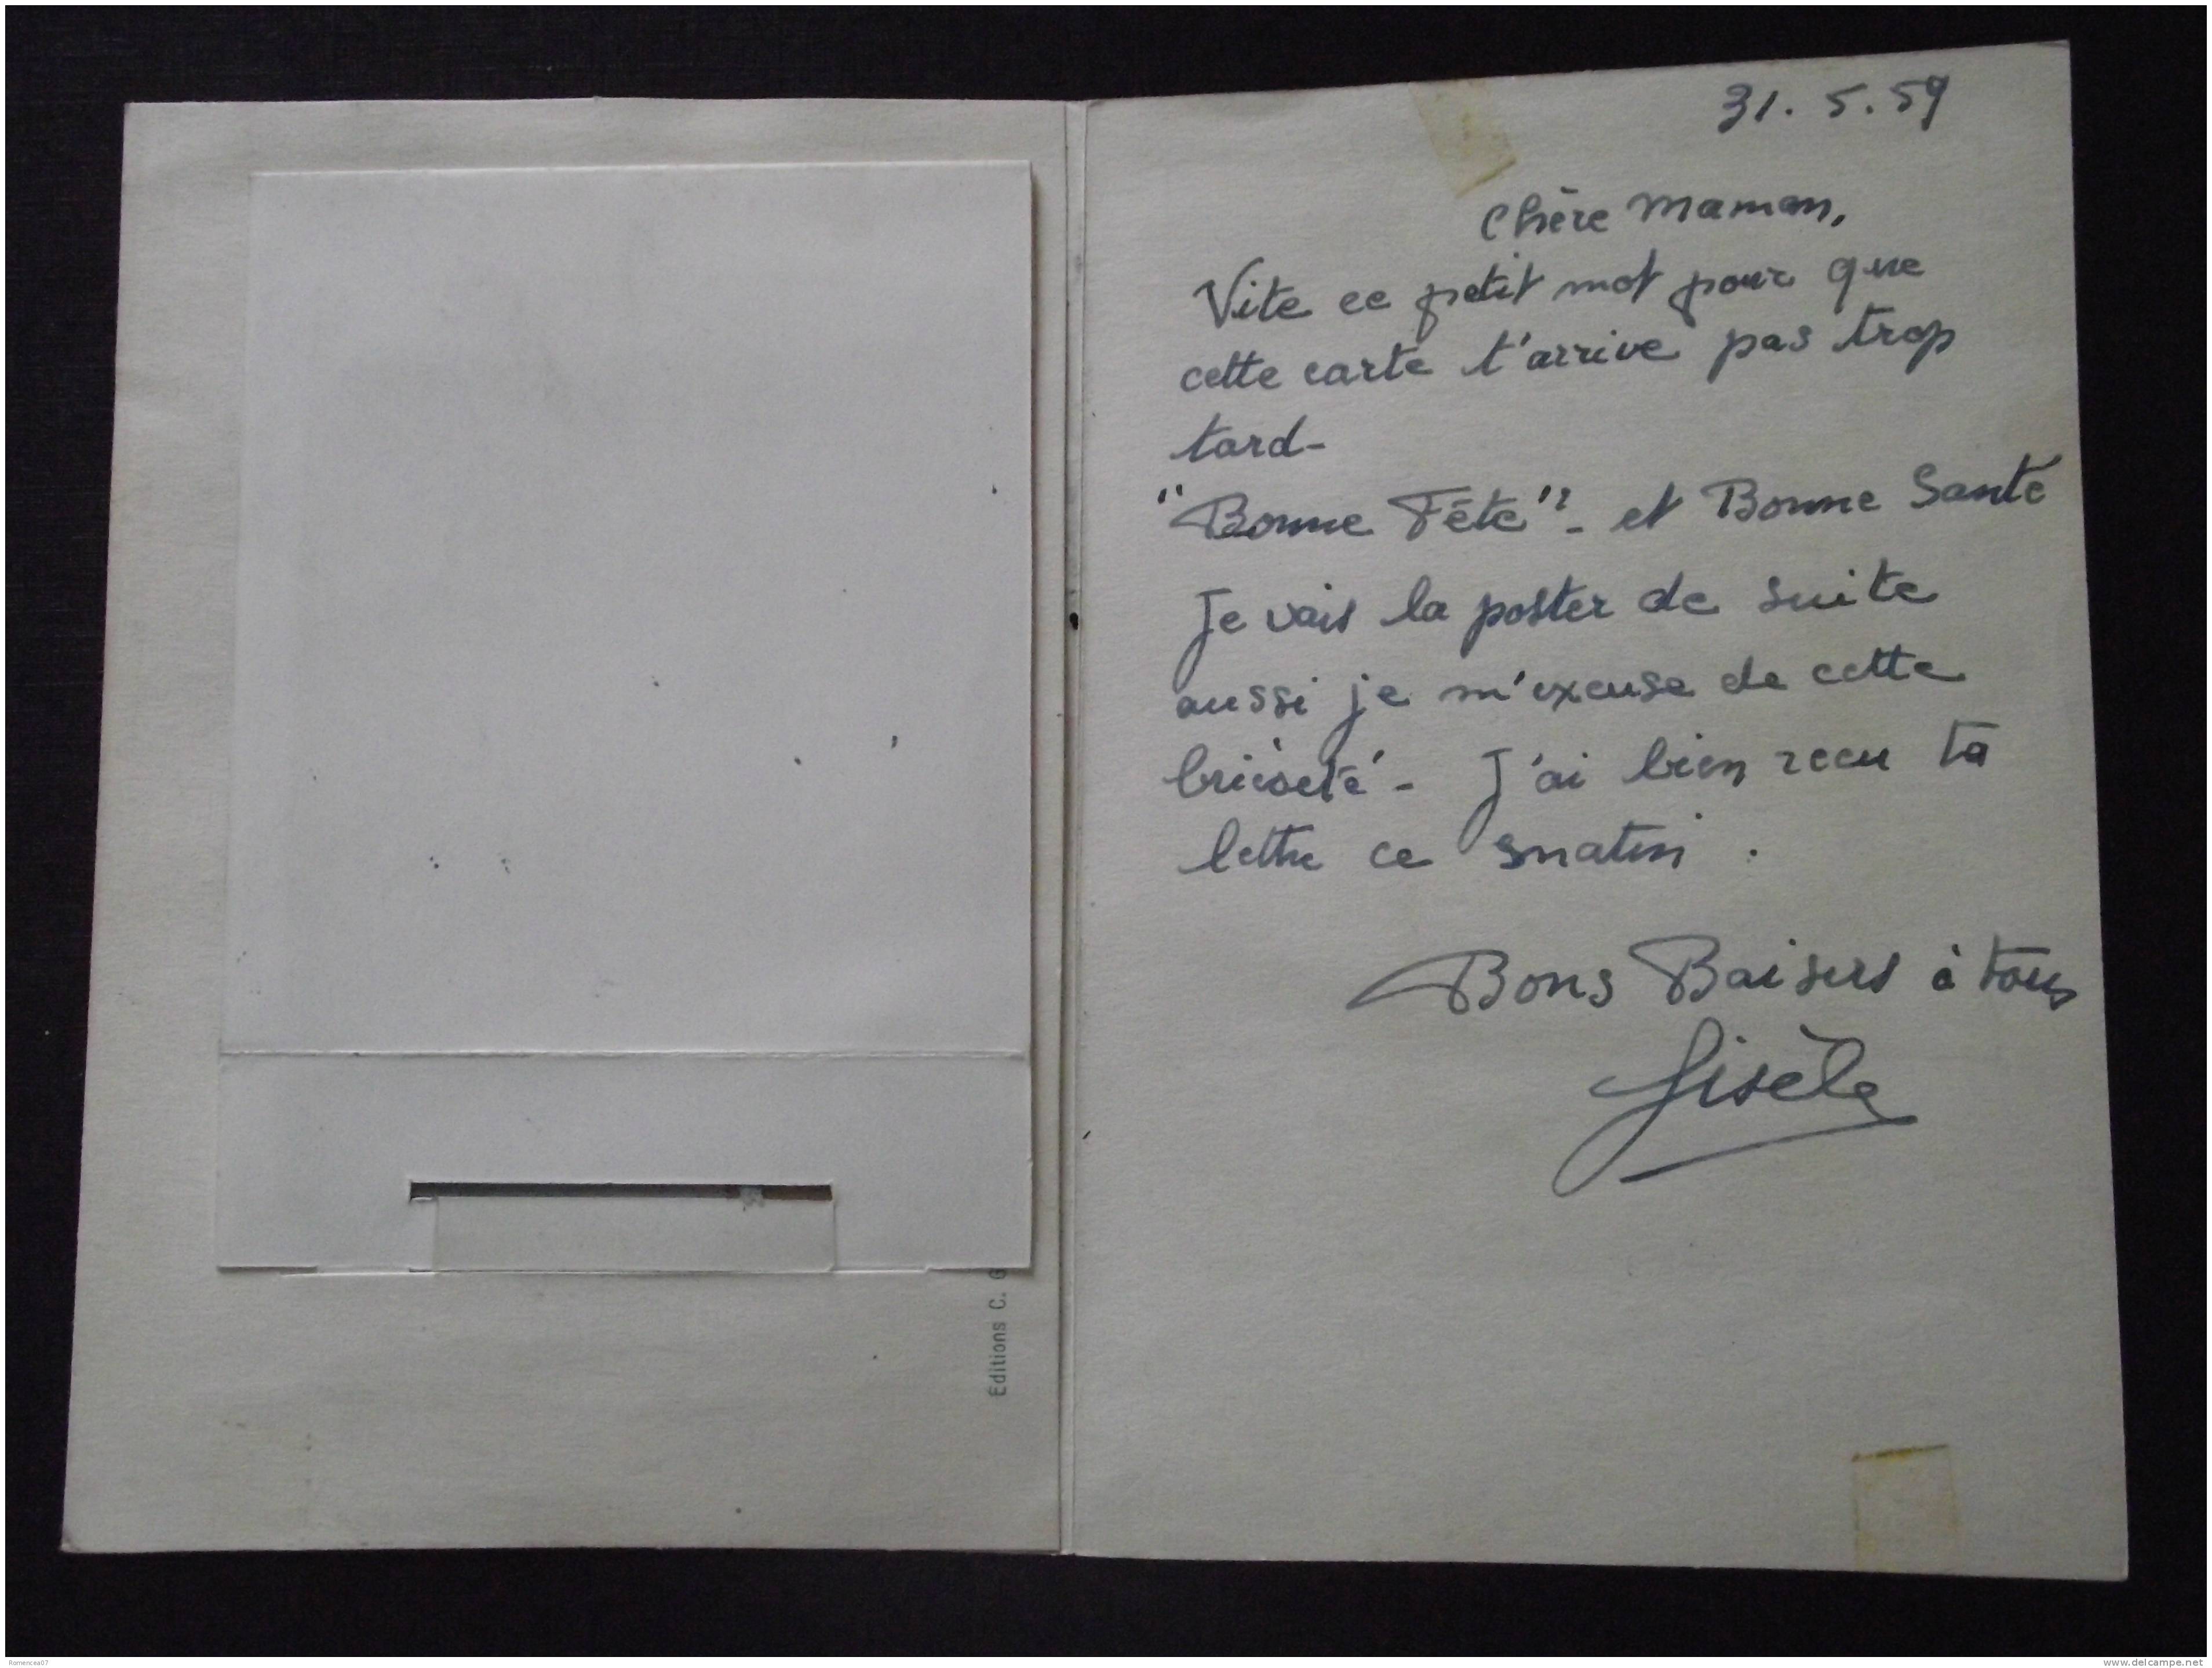 31.5.59
Chère Maman,
Vite ce petit mot pour que
cette carte t'arrive pas trop
tard-
"Bonne Fête"- et Bonne Santé
Je vais la poster de suite
aussi je m'excuse de cette
brièveté- J'ai bien recu ta
lettre ce matin.
Bons Baisers à tous
Gisèle
Editions C. G
Romencea07
www.delcampe.net